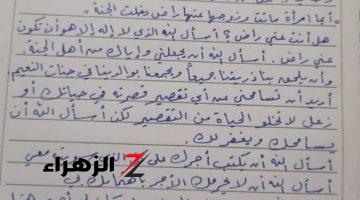 "أيما امرأة ماتت وزوجها عنها راض دخلت الجنة."
هل أنت عني راض؟ أسأل الله الذي لا إله إلا هو أن تكون
عني راض. أسأل الله أن يجعلني وإياك من أهل الجنة.
وأن يلحقه بنا ذريتنا جميعاً ويجمعنا بوالدينا في جنات النعيم
أريد أن تسامحني عن أي تقصير قصرته في حياتك أو
زعل لا تخلو الحياة من التقصير لكن أسأل الله أن
يسامحك ويغفر لك.
أسأل الله أن يكتب أجرك على معي
أسأل الله أن لا يحرمك الأجر في
الزهراء